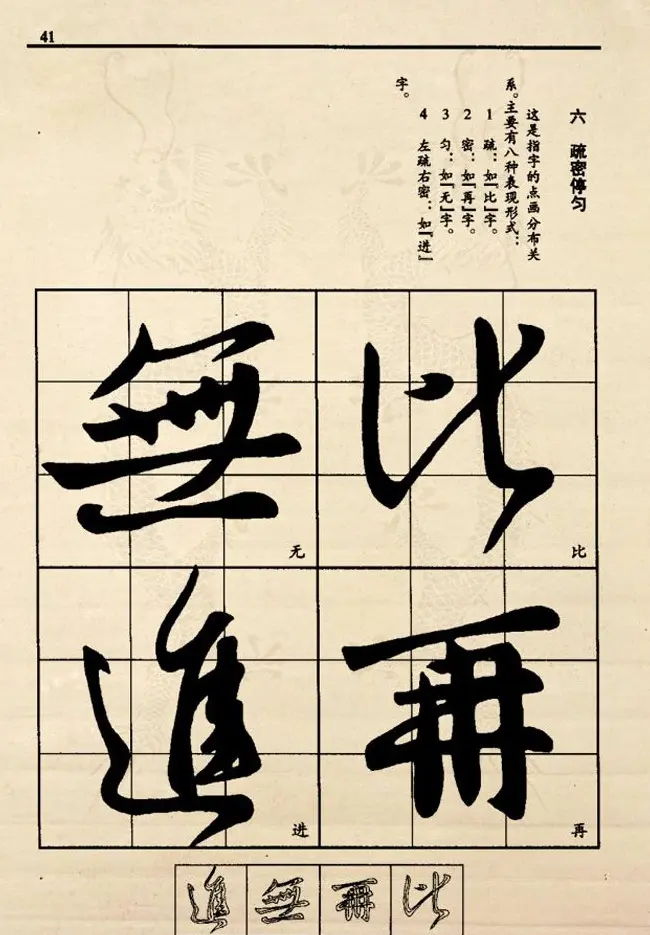 41
六 疏密停匀
这是指字的点画分布关
系。主要有八种表现形式:
1 疏:如『比』字。
2 密:如『再』字。
3 匀:如『无』字。
4 左疏右密:如『进』
字。
比
比
無
无
再
再
進
进
比
再
無
進